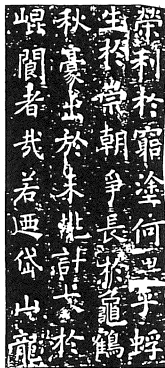 榮利於窮塗何乎蜉
生於崇朝爭長於龜鶴
秋豪出於未計於
崐閬者哉若迺岱山龍